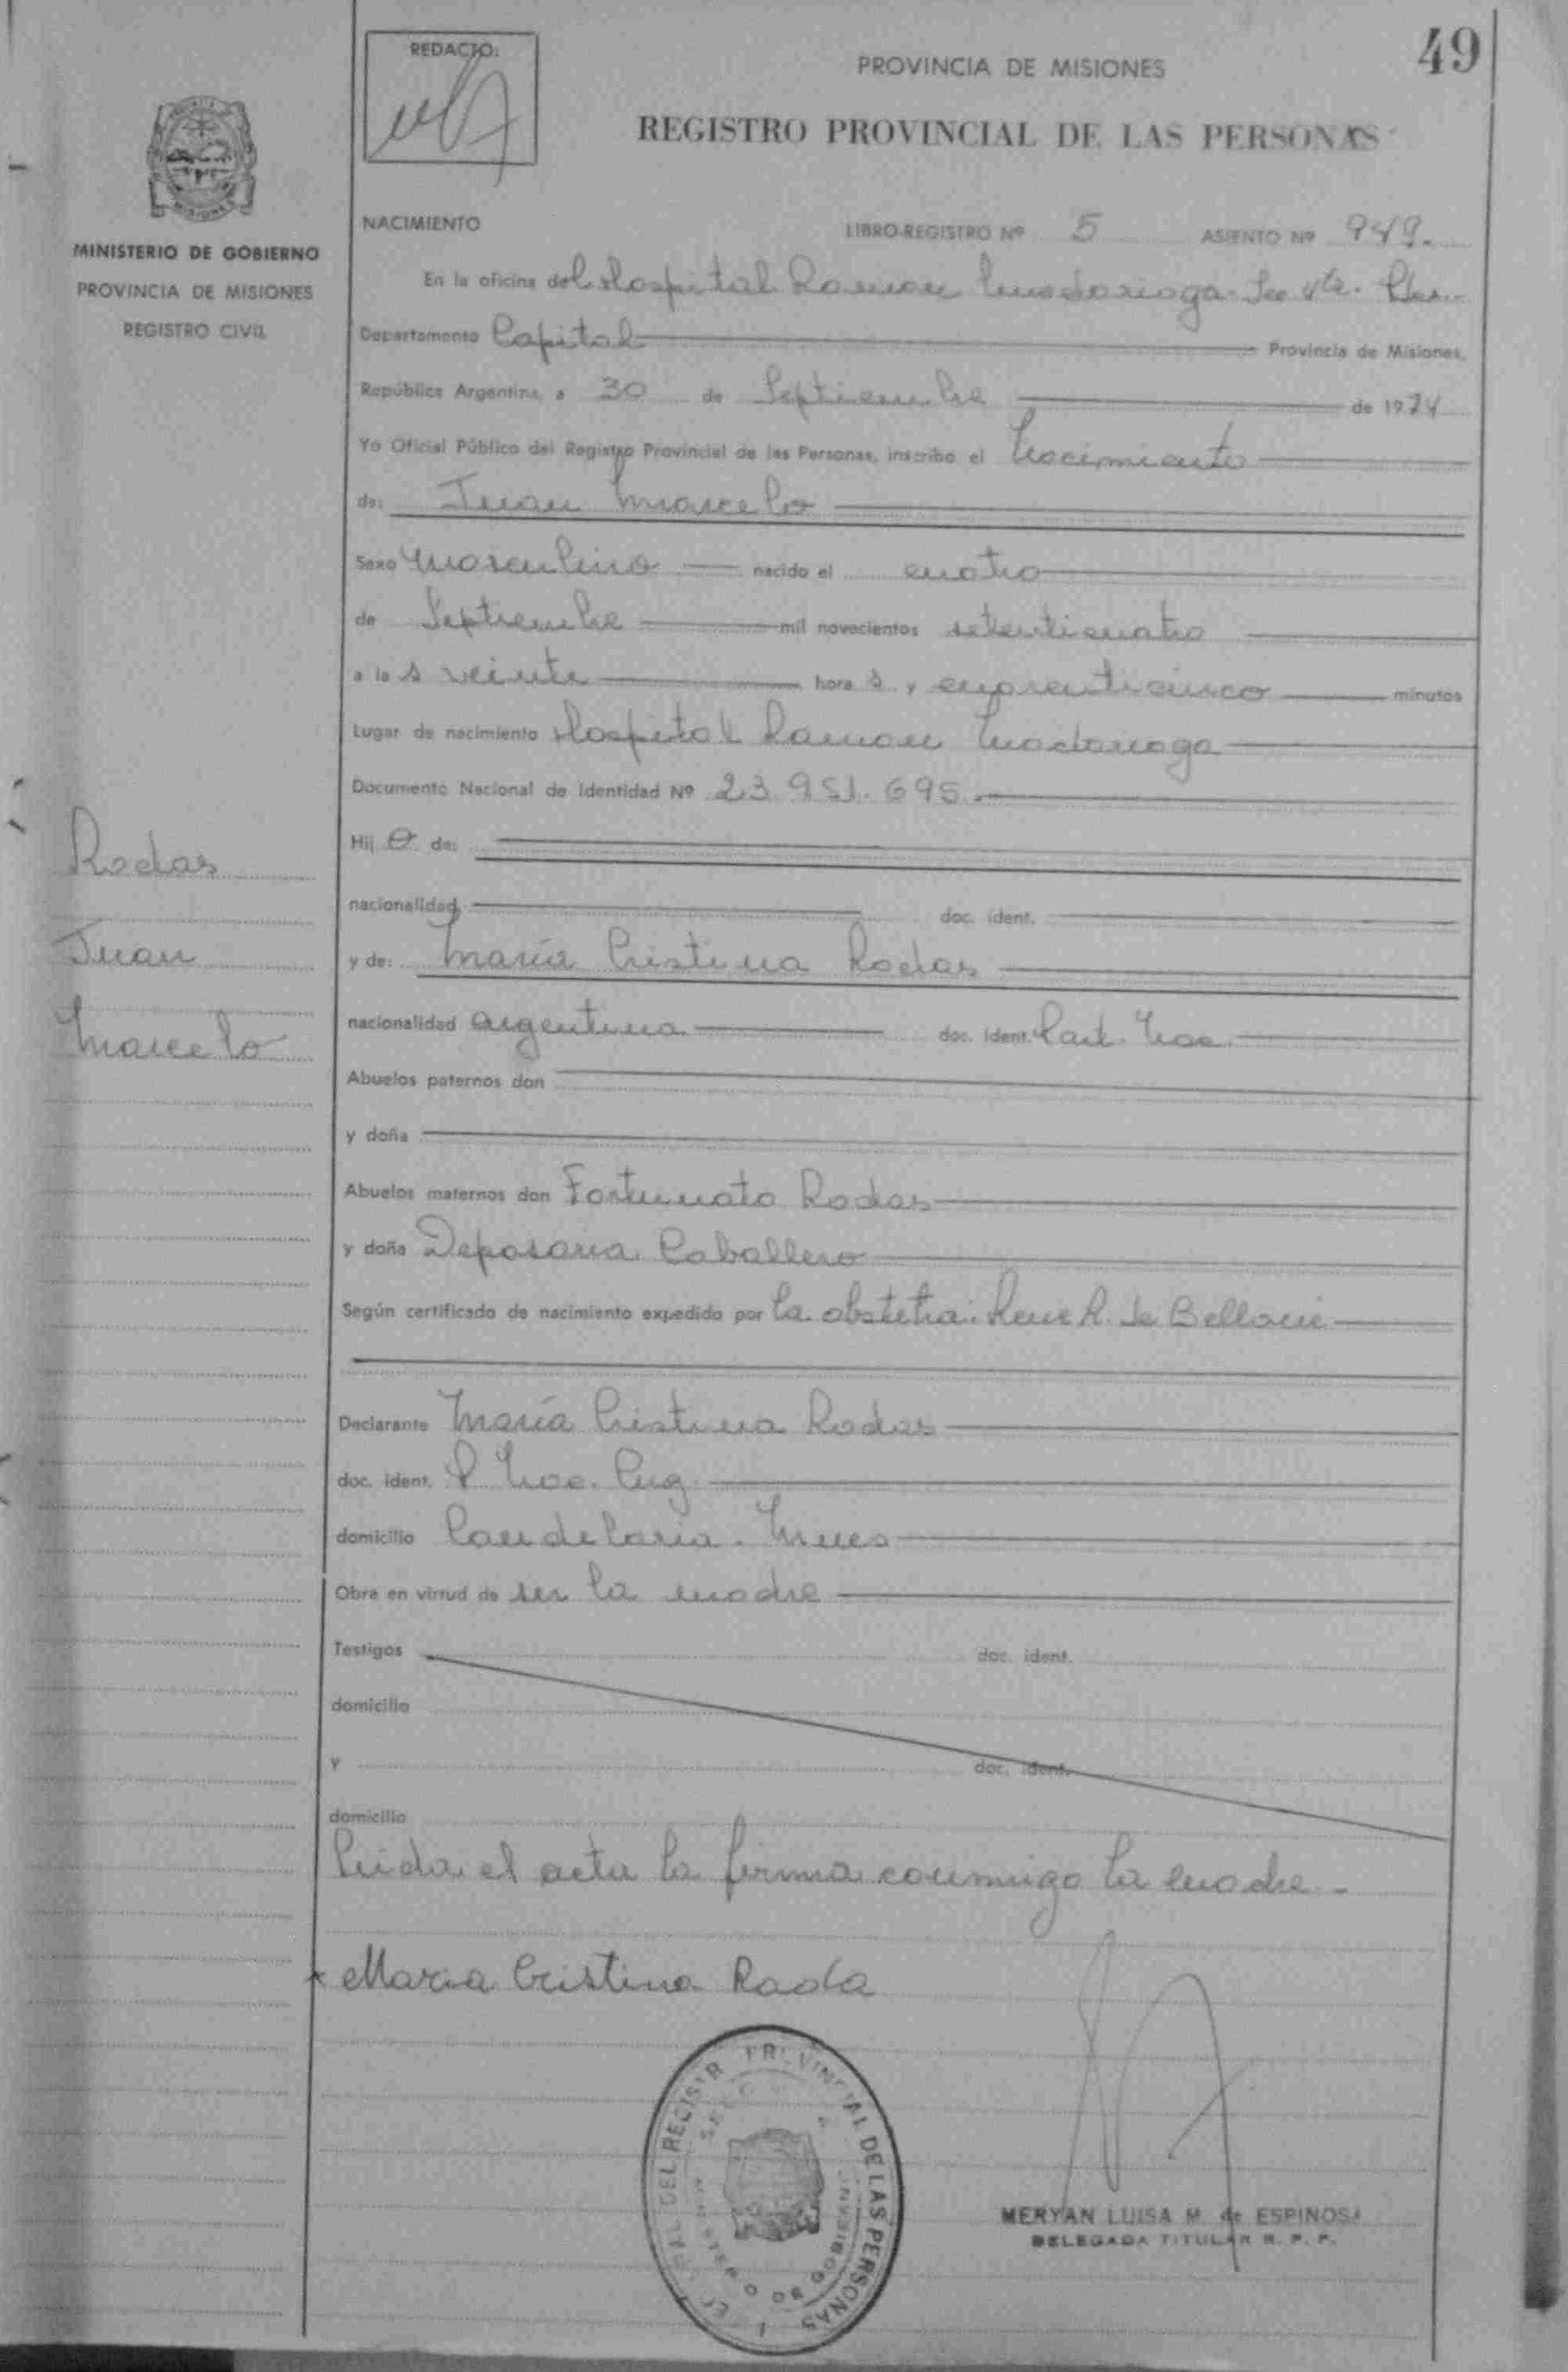 49
REDACTO:
PROVINCIA DE MISIONES
REGISTRO PROVINCIAL DE LAS PERSONAS
MISIONES
MINISTERIO DE GOBIERNO
PROVINCIA DE MISIONES
REGISTRO CIVIL
NACIMIENTO LIBRO-REGISTRO Nº 5 ASIENTO Nº 949.
En la oficina del Hospital Ramon Madariaga
Departamento Capital Provincia de Misiones,
República Argentina, a 30 de Septiembre de 1974
Yo Oficial Público del Registro Provincial de las Personas, inscribo el Nacimiento
de: Juan Marcelo
Sexo Masculino nacido el cuatro
de Septiembre mil novecientos setenticuatro
a las veinte horas y cuarenticinco minutos
Lugar de nacimiento Hospital Ramon Madariaga
Documento Nacional de Identidad Nº 23.951.695.
Hijo de:
nacionalidad doc. ident.
y de: María Cristina Rodas
nacionalidad argentina doc. ident. Part. Nac.
Abuelos paternos don
y doña
Abuelos maternos don Fortunato Rodas
y doña Deposaria Caballero
Según certificado de nacimiento expedido por la obstetra: Rene R. de
Declarante María Cristina Rodas
doc. ident. P. Nac.
domicilio Candelaria. Mnes
Obra en virtud de ser la madre
Testigos doc. ident.
domicilio
y doc. ident.
domicilio
Leida el acta la firma conmigo la madre.-
Maria Cristina Roda
Rodas
Juan
Marcelo
DEL REGISTR PROVINCIAL DE LAS PERSONAS
MERYAN LUISA M. de ESPINOSA
DELEGADA TITULAR R. P. P.